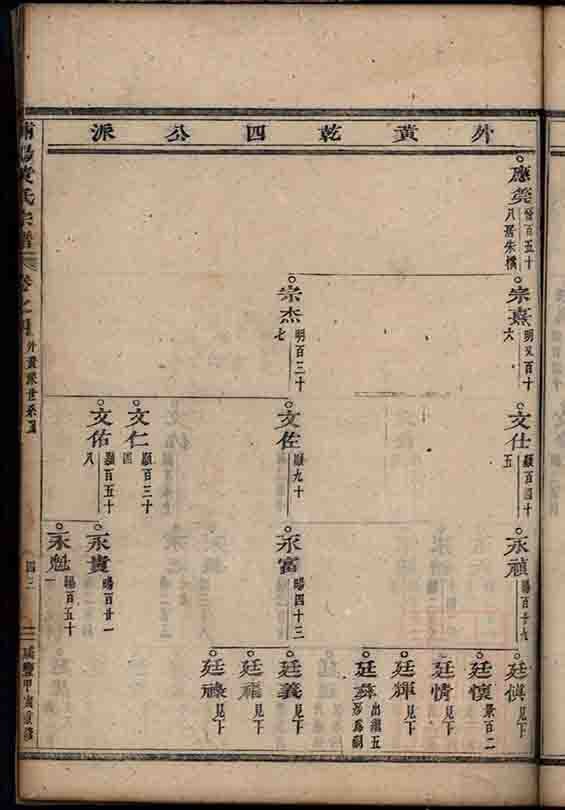 外黃乾四公派
應
百五十八居朱橋
宗熹
明又百十六
宗杰
明百三十七
文仕
顯百四十五
文佐
顯九十
文仁
顯百三十四
文佑
顯百五十八
永禎
暘百廿九
永富
暘四十三
永貴
暘百廿一
永魁
暘百五十一
廷
見下
廷懷
景百二
廷情
見下
廷輝
見下
廷
出繼五爲嗣
廷義
見下
廷福
見下
廷祿
見下
氏宗譜
卷之四
外黃派世系圖
四三
咸豐甲寅重修